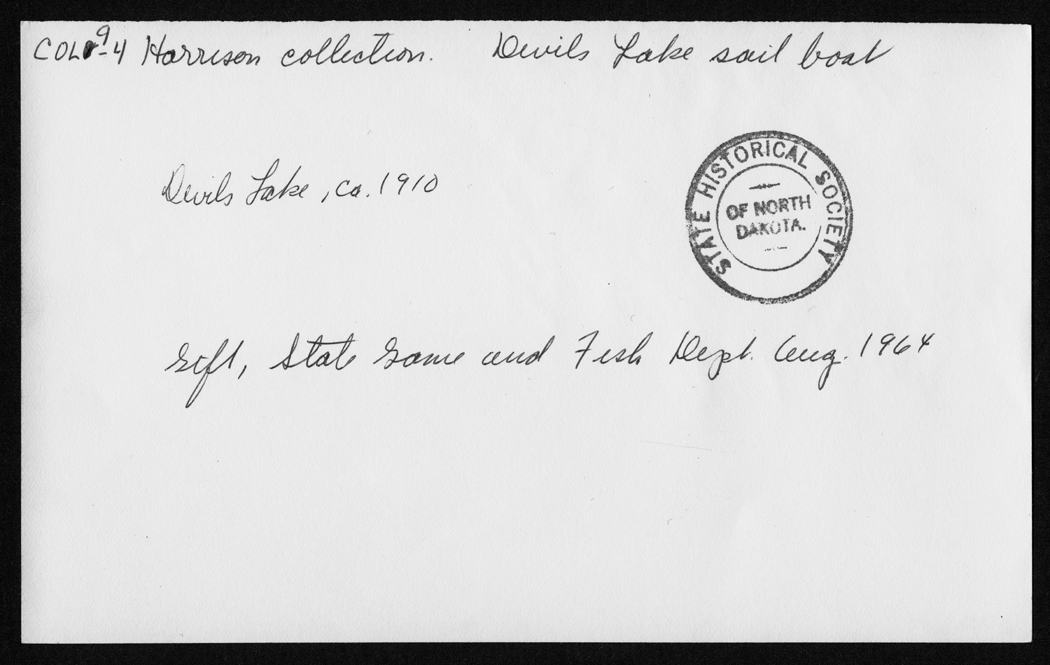 COL 9-4 Harrison collection. Devils Lake sail boat
STATE HISTORICAL SOCIETY
OF NORTH
DAKOTA.
Devils Lake, ca. 1910
Gift, State Game and Fish Dept. Aug. 1964